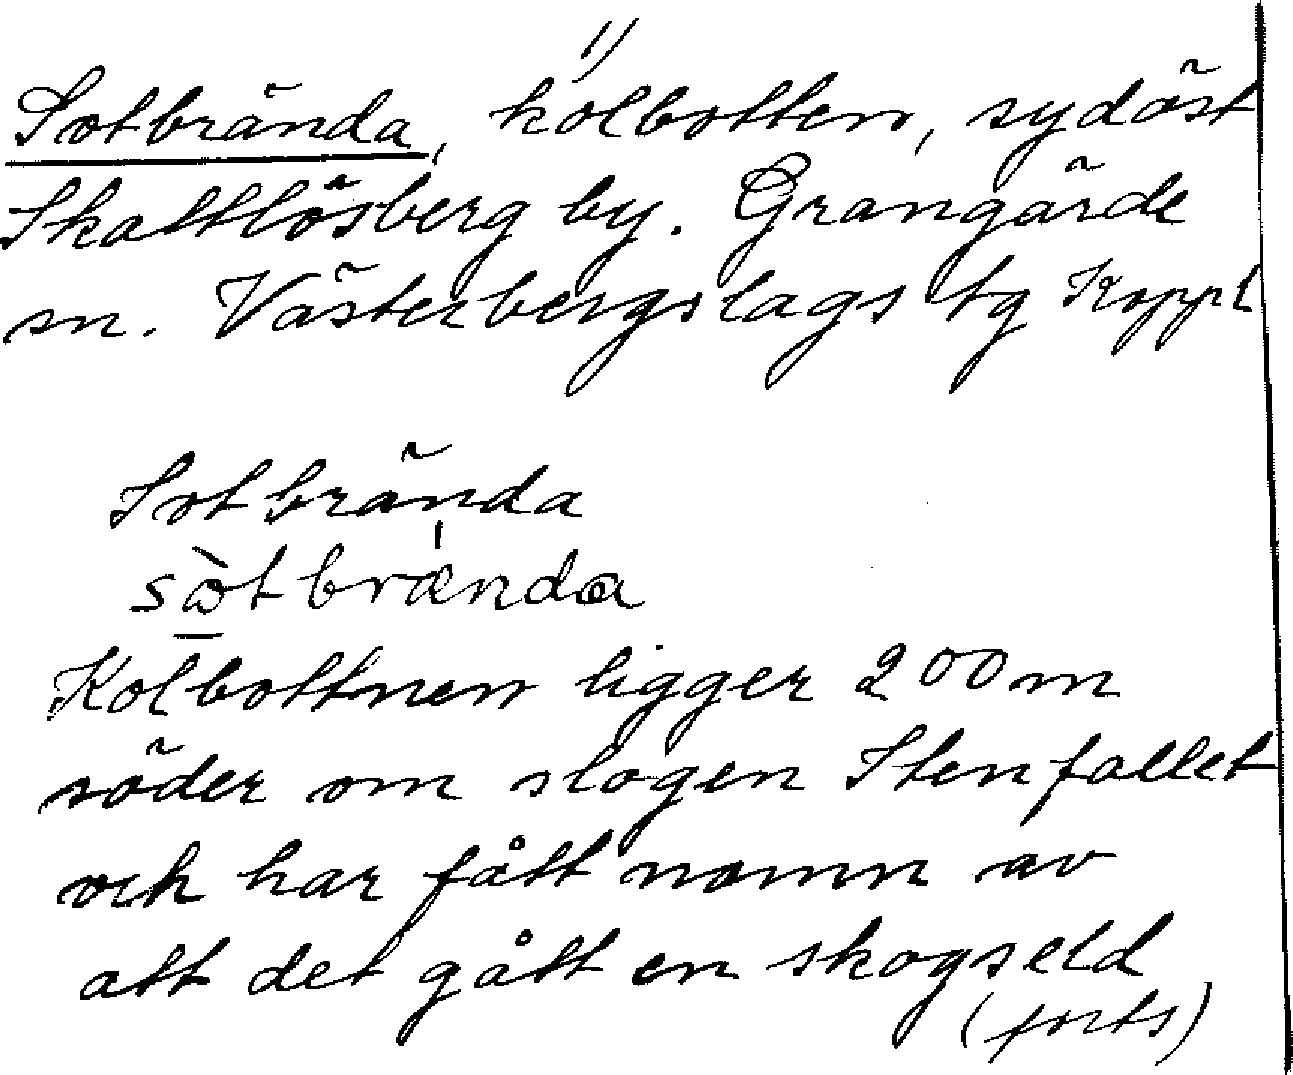 1)
Sotbrända, kolbotten, sydöst
Skattlösberg by. Grangärde
sn. Västerbergslags tg Koppl
Sotbrända
sòtbrænda
Kolbottnen ligger 200 m
söder om slogen Stenfallet
och har fått namn av
att det gått en skogseld
(forts)